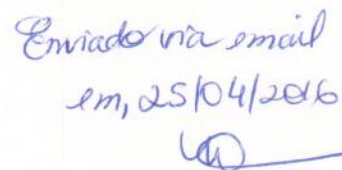 Enviado via email
em, 25/04/2016